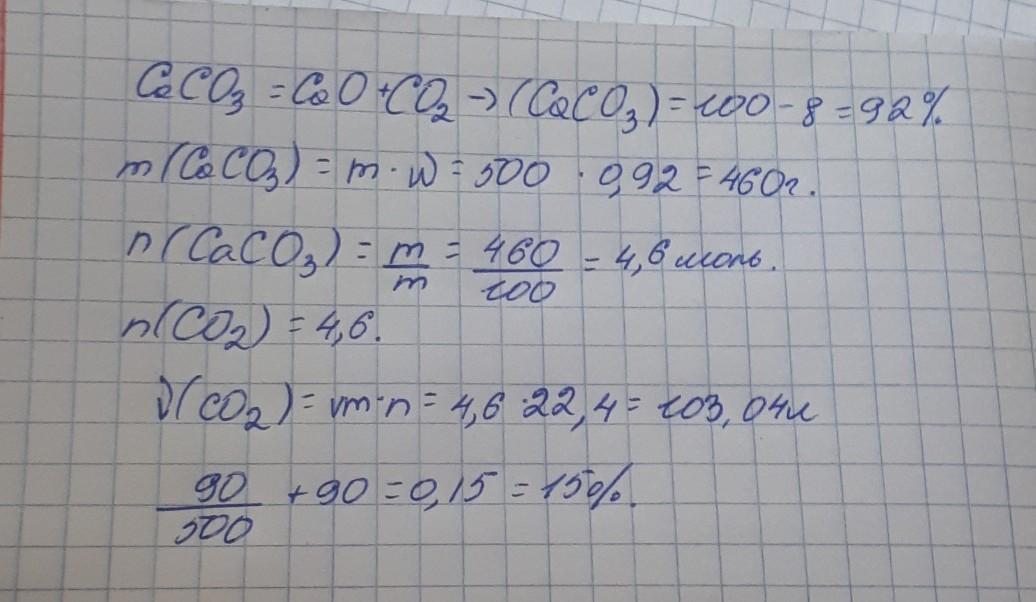 CaCO₃ = CaO + CO₂ → (CaCO₃) = 100 - 8 = 92%
m(CaCO₃) = m · w = 500 · 0,92 = 460г.
n(CaCO₃) = m/m = 460/100 = 4,6 моль.
n(CO₂) = 4,6.
V(CO₂) = Vm · n = 4,6 · 22,4 = 103,04л
90/500 + 90 = 0,15 = 15%.